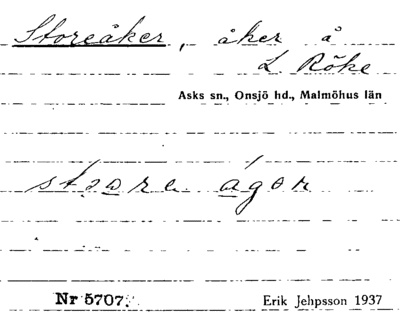 Storeåker, åker å
L. Röke
Asks sn., Onsjö hd., Malmöhus län
Nr 5707.
Erik Jehpsson 1937